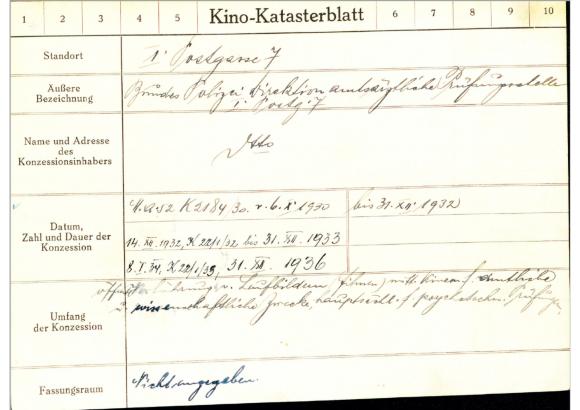 1 2 3 4 5 Kino-Katasterblatt 6 7 8 9 10
Standort I. Postgasse 7
Äußere Bezeichnung Bundes Polizei Direktion amtsärztliche Prüfungsstelle
I. Postg. 7
Name und Adresse des Konzessionsinhabers dtto
Datum, Zahl und Dauer der Konzession M.Abt. 52 K 2184/30. v. 6. X. 1930 bis 31. XII. 1932
14. XII. 1932, K 22/1/32, bis 31. XII. 1933
8. I. 34, K 22/1/33, 31. XII. 1936
Umfang der Konzession v. Laufbildern (Filmen) mitt. Kinem. f. amtliche
u. wissenschaftliche Zwecke, hauptsächl. f. psychotechn. Prüfungen
Fassungsraum Nicht angegeben.